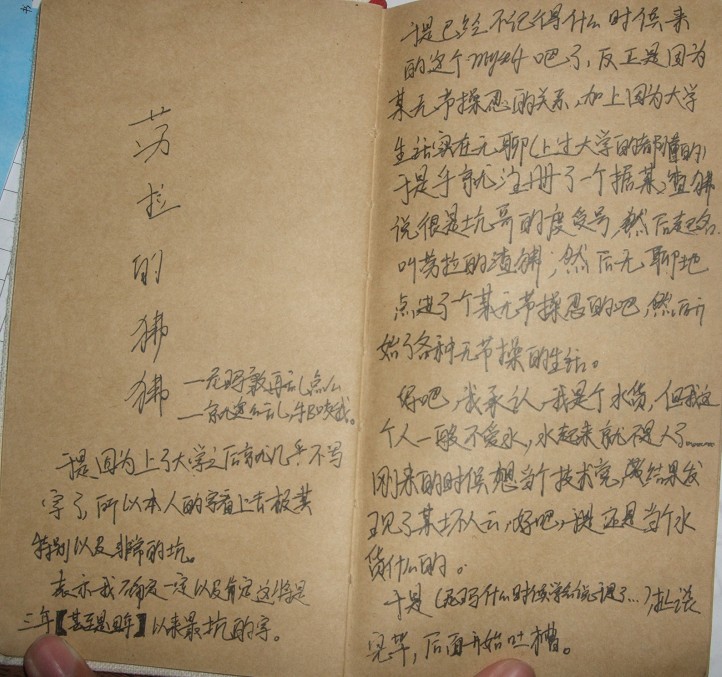 劳
拉
的
狒
狒
—尼玛敢再乱点么
—就这么乱，牛B咬我。
于是因为上了大学之后就几乎不写
字了，所以本人的字看上去极其
特别以及非常的坑。
表示我确定一定以及肯定这将是
三年【甚至是四年】以来最坑的字。
于是已经不记得什么时候来
的这个myself吧了，反正是因为
某无节操忍的关系，加上因为大学
生活实在无聊（上过大学的都懂的）
于是乎就注册了一个据某渣狒
说很是坑哥的度受号，然后起名
叫劳拉的渣狒；然后无聊地
点进了个某无节操忍的吧，然后开
始了各种无节操的生活。
好吧，我承认，我是个水货，但我这
个人一般不爱水，水起来就不是人了……
刚来的时候想当个技术党，结果发
现了某坏人云，好吧，于是还是当个水
货什么的。
于是（尼玛什么时候学会说于是了…），扯淡
完毕，后面开始吐槽。